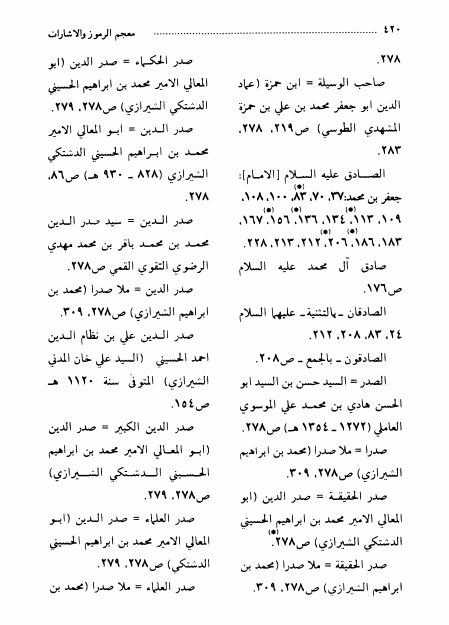 ٤٢٠ معجم الرموز والاشارات
٢٧٨.
صاحب الوسيلة = ابن حمزة (عماد
الدين ابو جعفر محمد بن علي بن حمزة
المشهدي الطوسي) ص٢١٩، ٢٧٨،
٢٨٣.
الصـادق عليه السـلام [الامـام]:
جعفر بن محمد: ٣٧، ٧٠، ٨٣، ١٠٠، ١٠٨،
١٠٩، ١١٣، ١٣٤، ١٣٦، ١٥٦، ١٦٧،
١٨٣، ١٨٦، ٢٠٦، ٢١٢، ٢١٣، ٢٢٨.
صادق آل محمد عليه السلام
ص١٧٦.
الصادقان ـ بالتثنية ـ عليهما السلام
٢٤، ٨٣، ٢٠٨، ٢١٢.
الصادقون ـ بالجمع ـ ص٢٠٨.
الصدر = السيد حسن بن السيد ابو
الحسن هادي بن محمـد علي الموسوي
العاملي (١٢٧٢ ـ ١٣٥٤ هـ) ص٢٧٨.
صدرا = ملا صدرا (محمد بن ابراهيم
الشيرازي) ص٢٧٨، ٣٠٩.
صدر الحقيقـة = صدر الدين (ابو
المعالي الامير محمد بن ابراهيم الحسيني
الدشتكي الشيرازي) ص٢٧٨.
صدر الحقيقة = ملا صدرا (محمد بن
ابراهيم الشيرازي) ص٢٧٨، ٣٠٩.
صدر الحكـماء = صدر الدين (ابو
المعالي الامير محمد بن ابراهيم الحسيني
الدشتكي الشيرازي) ص٢٧٨، ٢٧٩.
صدر الـدين = ابـو المعالي الامير
محمـد بن ابـراهيم الحسيني الدشتكي
الشيرازي (٨٢٨ ـ ٩٣٠ هـ) ص٨٦،
٢٧٨.
صدر الـدين = سيد صدر الـدين
محمـد بن محمـد باقر بن محمد مهدي
الرضوي التقوي القمي ص٢٧٨.
صدر الدين = ملا صدرا (محمد بن
ابراهيم الشيرازي) ص٢٧٨، ٣٠٩.
صدر الدين علي بن نظام الـدين
احمد الحسيني (السيد علي خان المدني
الشيرازي) المتوفى سنة ١١٢٠ هـ
ص١٥٤.
صدر الدين الكبير = صدر الدين
(ابـو المعـالي الامير محمد بن ابراهيم
الحسـيني الـدشـتكي الشـيرازي)
ص٢٧٨، ٢٧٩.
صدر العلماء = صدر الـدين (ابـو
المعالي الامير محمد بن ابراهيم الحسيني
الدشتكي) ص٢٧٨، ٢٧٩.
صدر العلماء = ملا صدرا (محمد بن